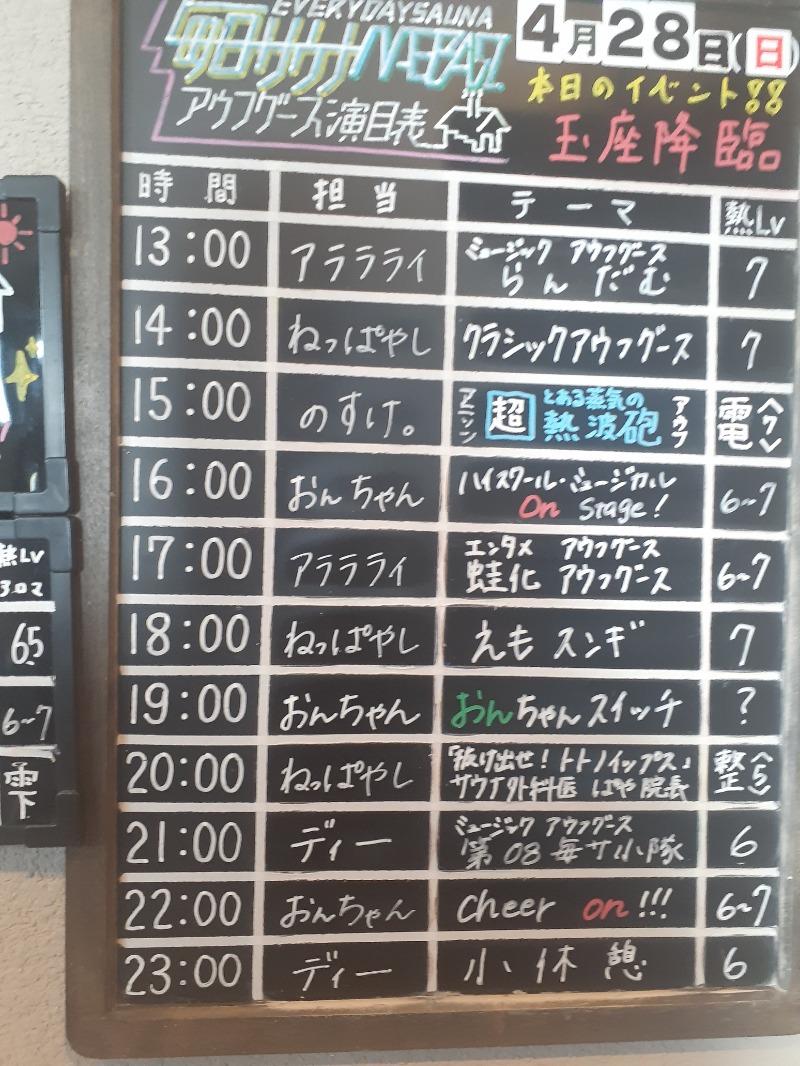 EVERYDAYSAUNA
毎日サウナ MAEBASHI
4月28日(日)
アウフグース演目表
本日のイベント
玉座降臨
時間 担当 テーマ 熱Lv
13:00 アララライ ミュージック アウフグース らんだむ 7
14:00 ねっぱやし クラシックアウフグース 7
15:00 のすけ。 アニソン 超 とある蒸気の 熱波砲 アウフ 電<7>
16:00 おんちゃん ハイスクール・ミュージカル On Stage! 6~7
17:00 アララライ エンタメ アウフグース 蛙化 アウフグース 6~7
18:00 ねっぱやし えもスンギ 7
19:00 おんちゃん おんちゃんスイッチ ?
20:00 ねっぱやし 「抜け出せ!トトノイップス」 サウナ外科医 ぱや院長 整<5>
21:00 ディー ミュージック アウフグース 第08毎サ小隊 6
22:00 おんちゃん cheer on!!! 6~7
23:00 ディー 小休憩 6
熱Lv
アロマ
65
6~7
雫